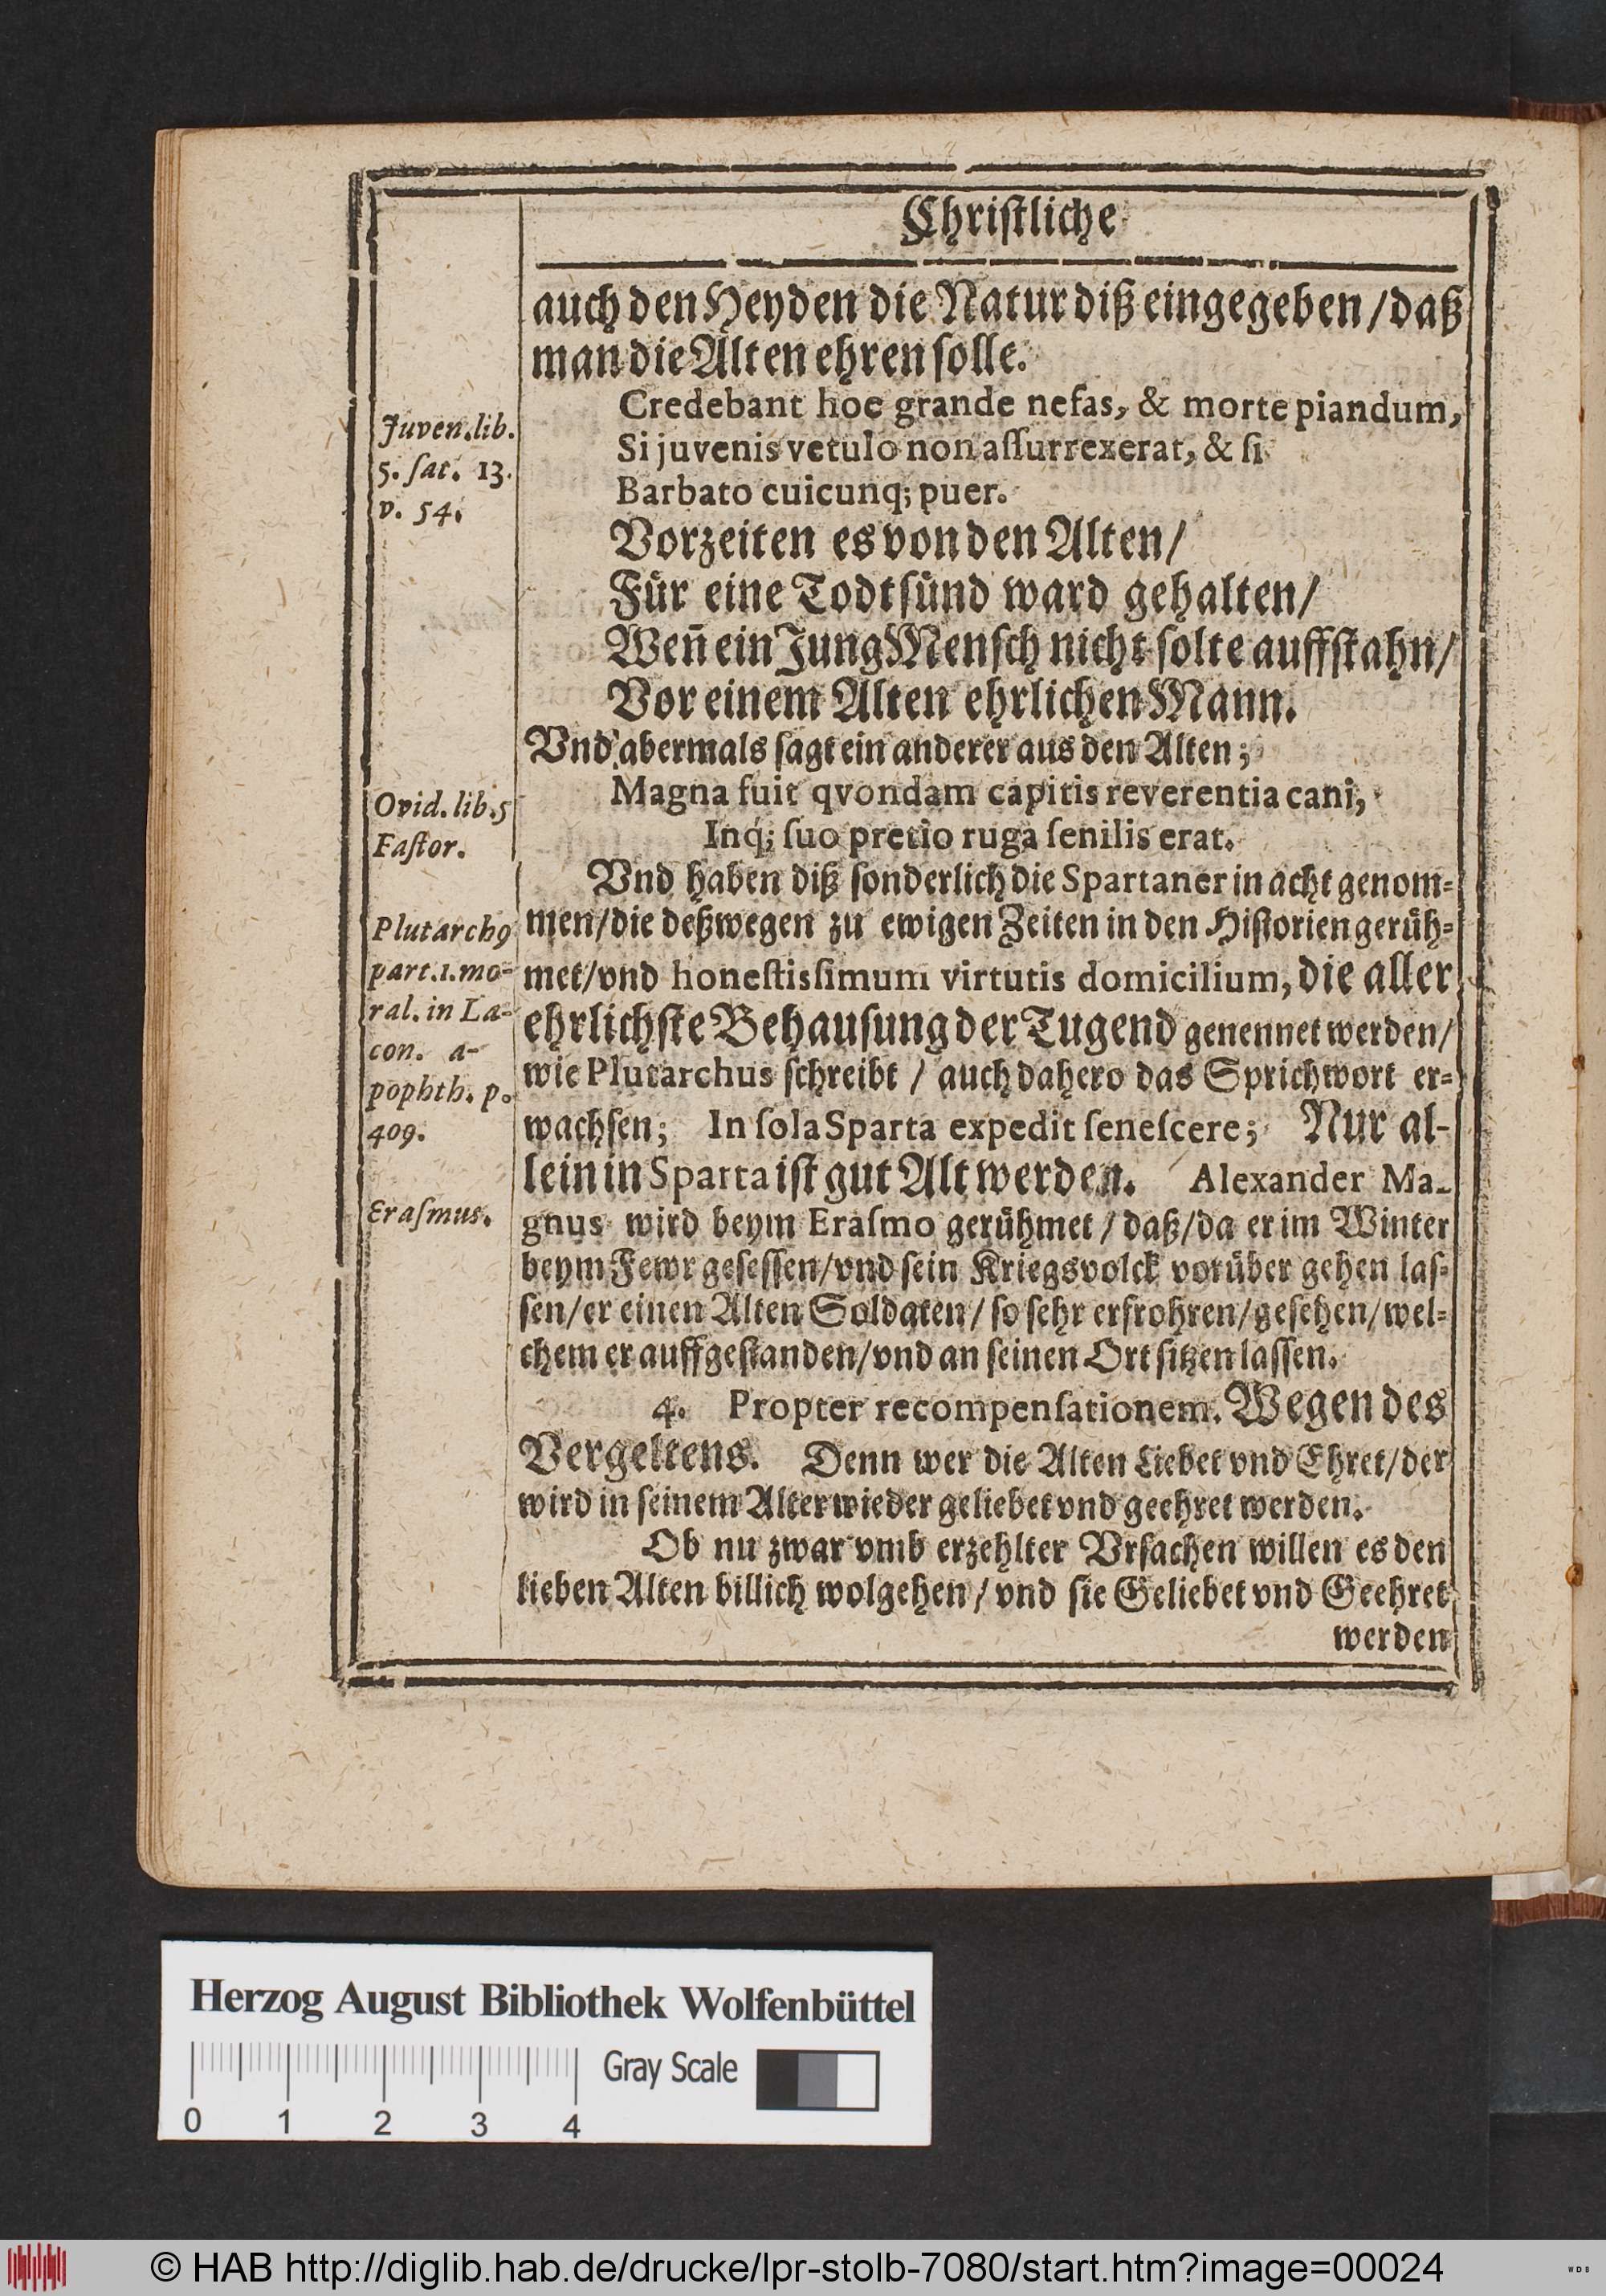 Christliche
auch den Heyden die Natur diß eingegeben/daß
man die Alten ehren solle.
Juven. lib.
5. ſat. 13.
v. 54.
Credebant hoc grande nefas, & morte piandum,
Si juvenis vetulo non aſſurrexerat, & ſi
Barbato cuicunq; puer.
Vorzeiten es von den Alten/
Für eine Todtſünd ward gehalten/
Weñ ein Jung Menſch nicht ſolte auffſtahn/
Vor einem Alten ehrlichen Mann.
Vnd abermals ſagt ein anderer aus den Alten;
Ovid. lib. 5
Faſtor.
Magna fuit qvondam capitis reverentia cani,
Inq; ſuo pretio ruga ſenilis erat.
Vnd haben diß ſonderlich die Spartaner in acht genom-
men/die deßwegen zu ewigen Zeiten in den Hiſtorien gerüh-
met/vnd honeſtisſimum virtutis domicilium, die aller
ehrlichſte Behauſung der Tugend genennet werden/
wie Plutarchus ſchreibt / auch dahero das Sprichwort er-
wachſen; In ſola Sparta expedit ſeneſcere; Nur al-
lein in Sparta iſt gut Alt werden. Alexander Ma-
Plutarchꝰ
part. 1. mo-
ral. in La-
con. a-
pophth. p.
409.
Eraſmus.
gnus wird beym Eraſmo gerühmet / daß/da er im Winter
beym Fewr geſeſſen/vnd ſein Kriegsvolck vorüber gehen laſ-
ſen/er einen Alten Soldaten/ ſo ſehr erfrohren/geſehen/wel-
chem er auffgeſtanden/vnd an ſeinen Ort ſitzen laſſen.
4. Propter recompenſationem. Wegen des
Vergeltens. Denn wer die Alten Liebet vnd Ehret/der
wird in ſeinem Alter wieder geliebet vnd geehret werden.
Ob nu zwar vmb erzehlter Vrſachen willen es den
lieben Alten billich wolgehen/ vnd ſie Geliebet vnd Geehret
werden
Herzog August Bibliothek Wolfenbüttel
Gray Scale
0 1 2 3 4
© HAB http://diglib.hab.de/drucke/lpr-stolb-7080/start.htm?image=00024
WDB